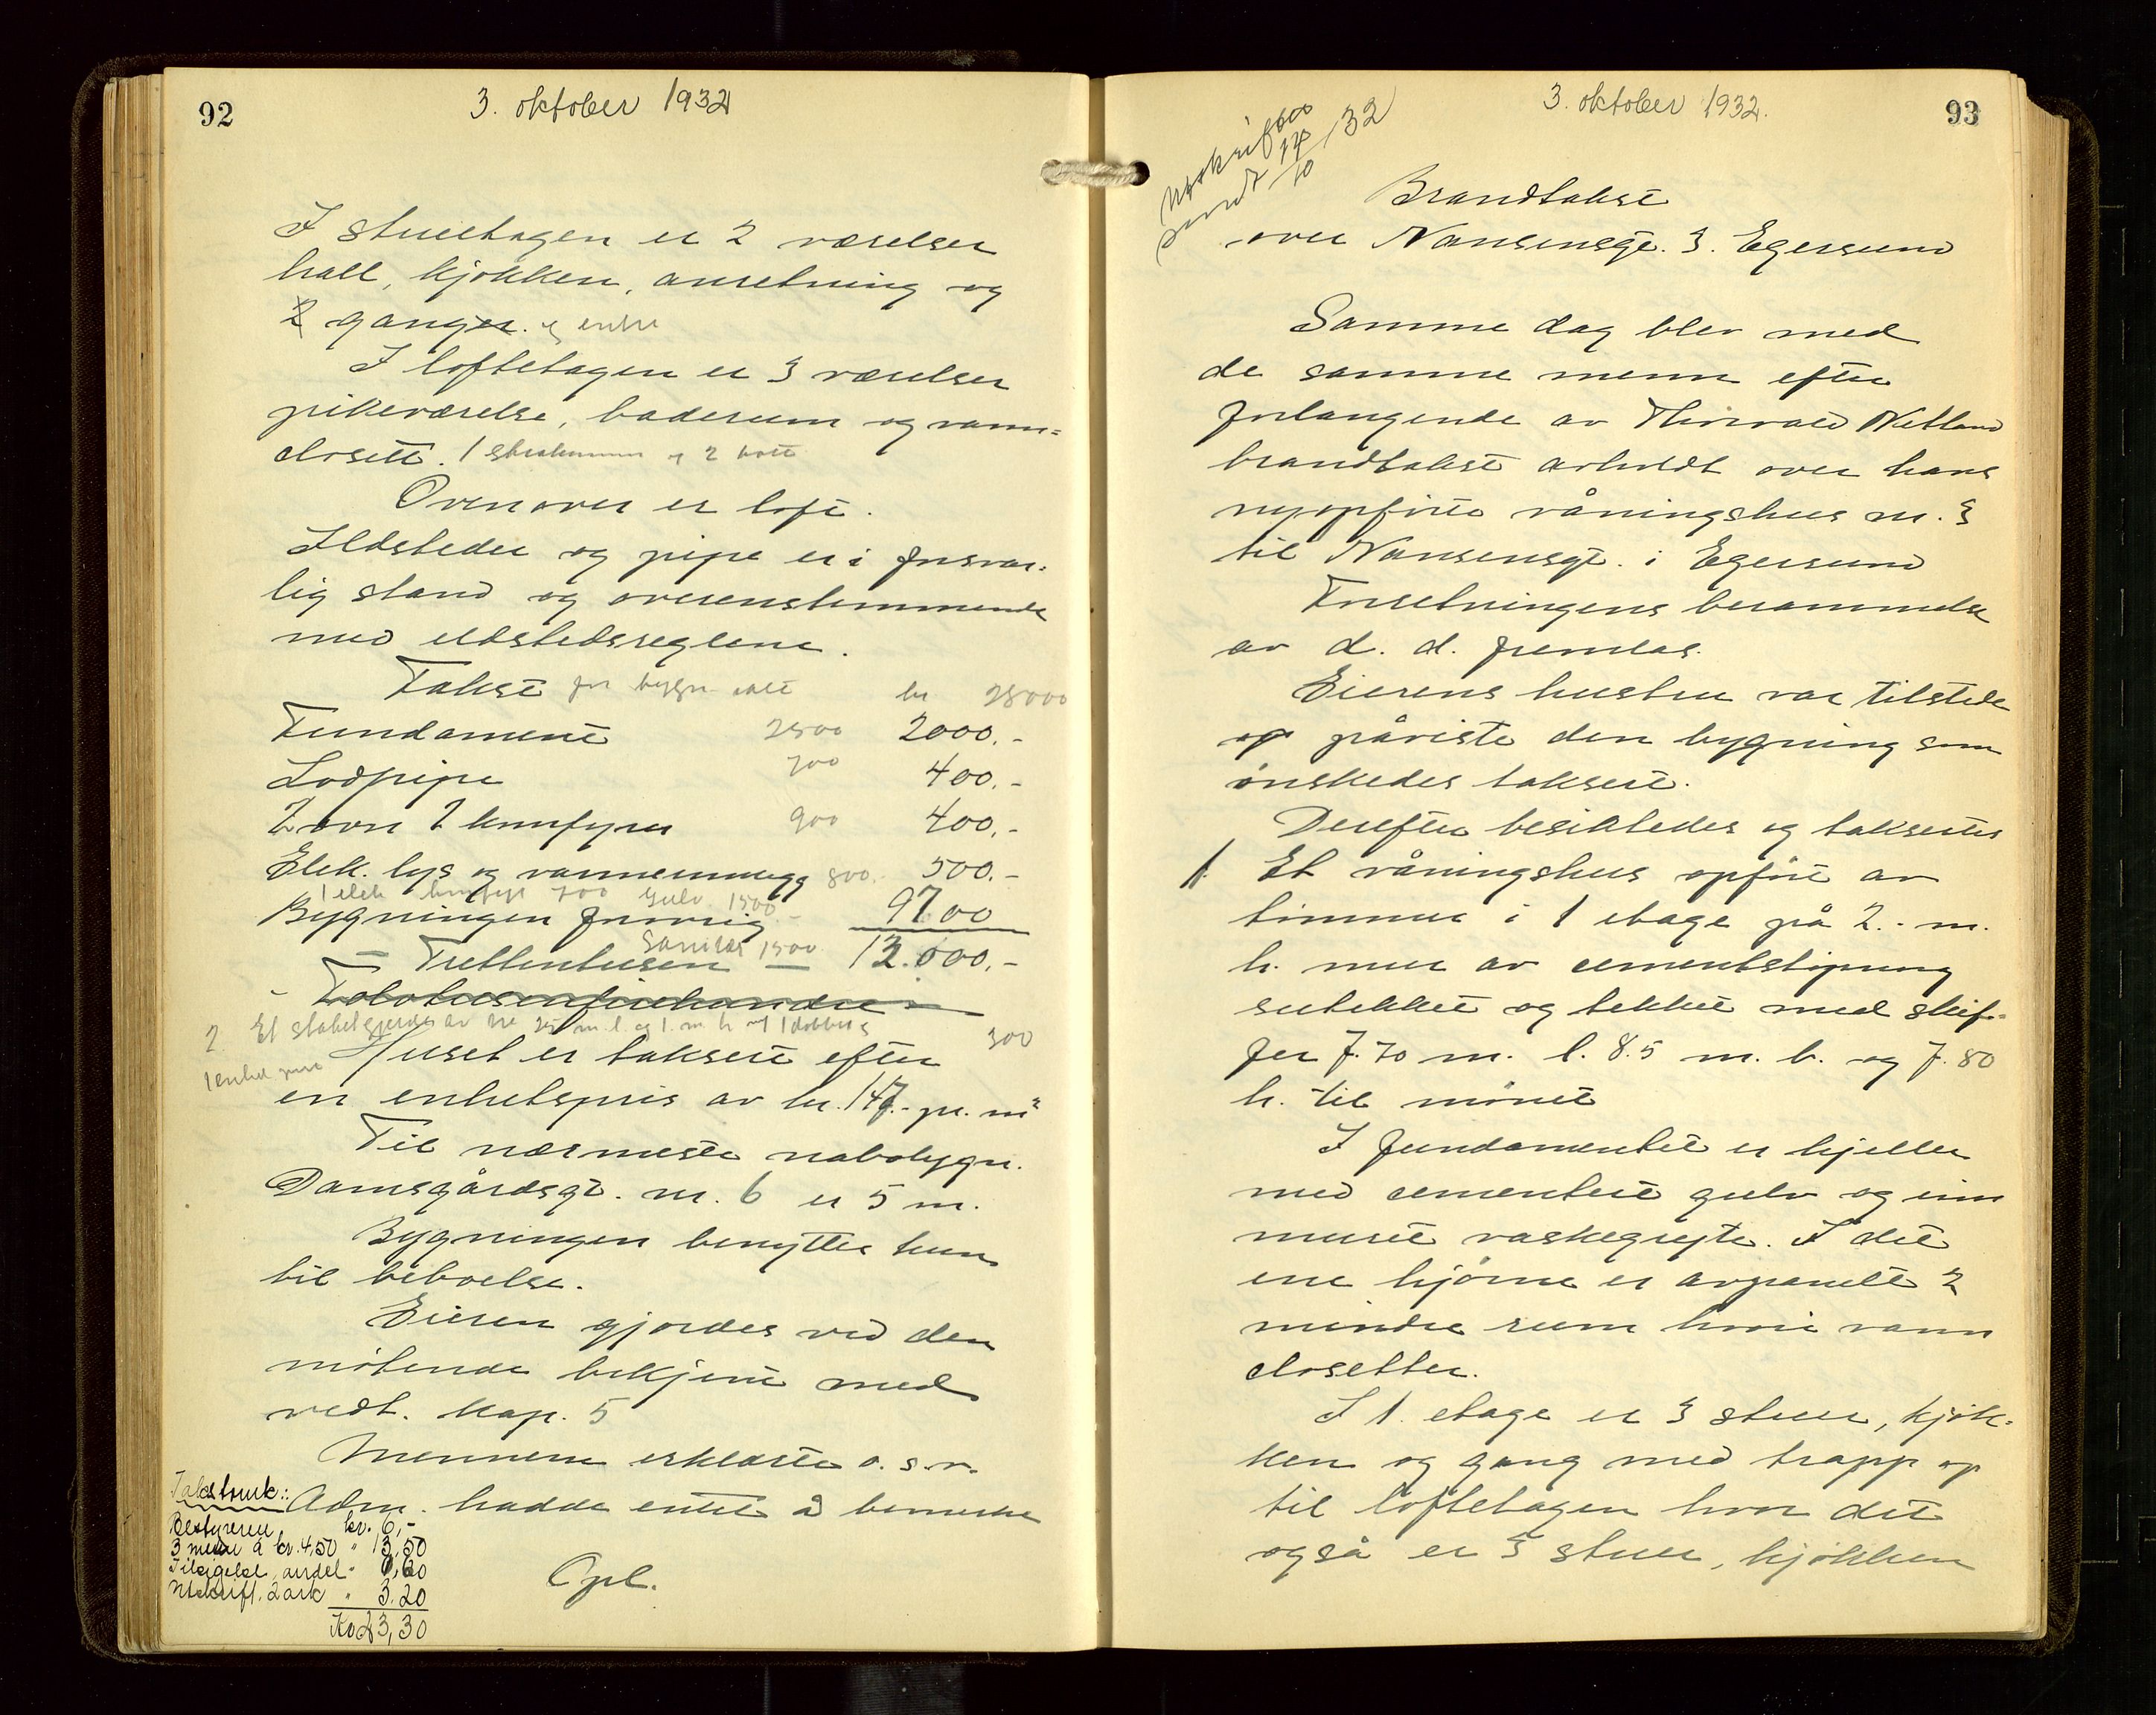 92
3. oktober 1932
I stueetagen er 2 værelser
hall, kjøkken, anretning og
2 ganger. og entre
I loftetagen er 3 værelser
pikeværelse, baderum og vann=
closett. 1 og 2 kott
Ovenover er loft.
Ildsteder og pipe er i forsvar-
lig stand og overensstemmende
med ildstedsreglene.
Takst for bygn. kr 28000
Fundament 2500 2000.-
Lodpipe 700 400.-
2 ovn 1 komfyrer 900 400.-
Elek. lys og varmeinnlegg 800.- 500.-
1 elek komfyr 700 Gulv 1500.-
Bygningen forøvrig 9700
Sanitær 1500
= Trettentusen — 13.000.-
- Tolvtusenfirehundre -
2. Et stakitgjerde av tre 25 m. l. og 1. m. h. m/ 1 dobbel og 300
1 enkel port
Huset er taksert efter
en enhetspris av kr. 147.- pr. m²
Til nærmeste nabobygn.
Damsgårdsgt. nr. 6 er 5 m.
Bygningen benyttes kun
til beboelse.
Eieren gjordes ved den
møtende bekjent med
vedt. kap. 5
Mennene erklærte o. s. v.
Adm. hadde intet å bemerke
Opl.
Takstbruk:
Bestyreren kr. 6,-
3 menn á kr. 4,50 " 13,50
Tilsigelse, andel " 0,60
Utskrift. 2 ark " 3.20
Kr 23,30
93
3. oktober 1932.
Utskrift
sendt 14/10 /32
Brandtakst
over Nansensgt. 3. Egersund
Samme dag blev med
de samme menn efter
forlangende av Thorvald Netland
brandtakst avholdt over hans
nyopførte våningshus nr. 3
til Nansensgt. i Egersund
Forretningens berammelse
av d. d. fremlas.
Eierens hustru var tilstede
og påviste den bygning som
ønskedes taksert.
Derefter besiktedes og taksertes
1. Et våningshus opført av
timmer i 1 etage på 2.- m.
h. mur av cementstøpning
sutekket og tekket med skif-
fer 7.70 m. l. 8.5 m. b. og 7.80
h. til mønet
I fundamentet er kjeller
med cementert gulv og inn
muret vaskegryte. I det
ene hjørne er avpanelt 2
mindre rum hvori vann
closetter.
I 1. etage er 3 stuer, kjøk-
ken og gang med trapp op
til loftetagen hvor det
også er 3 stuer, kjøkken